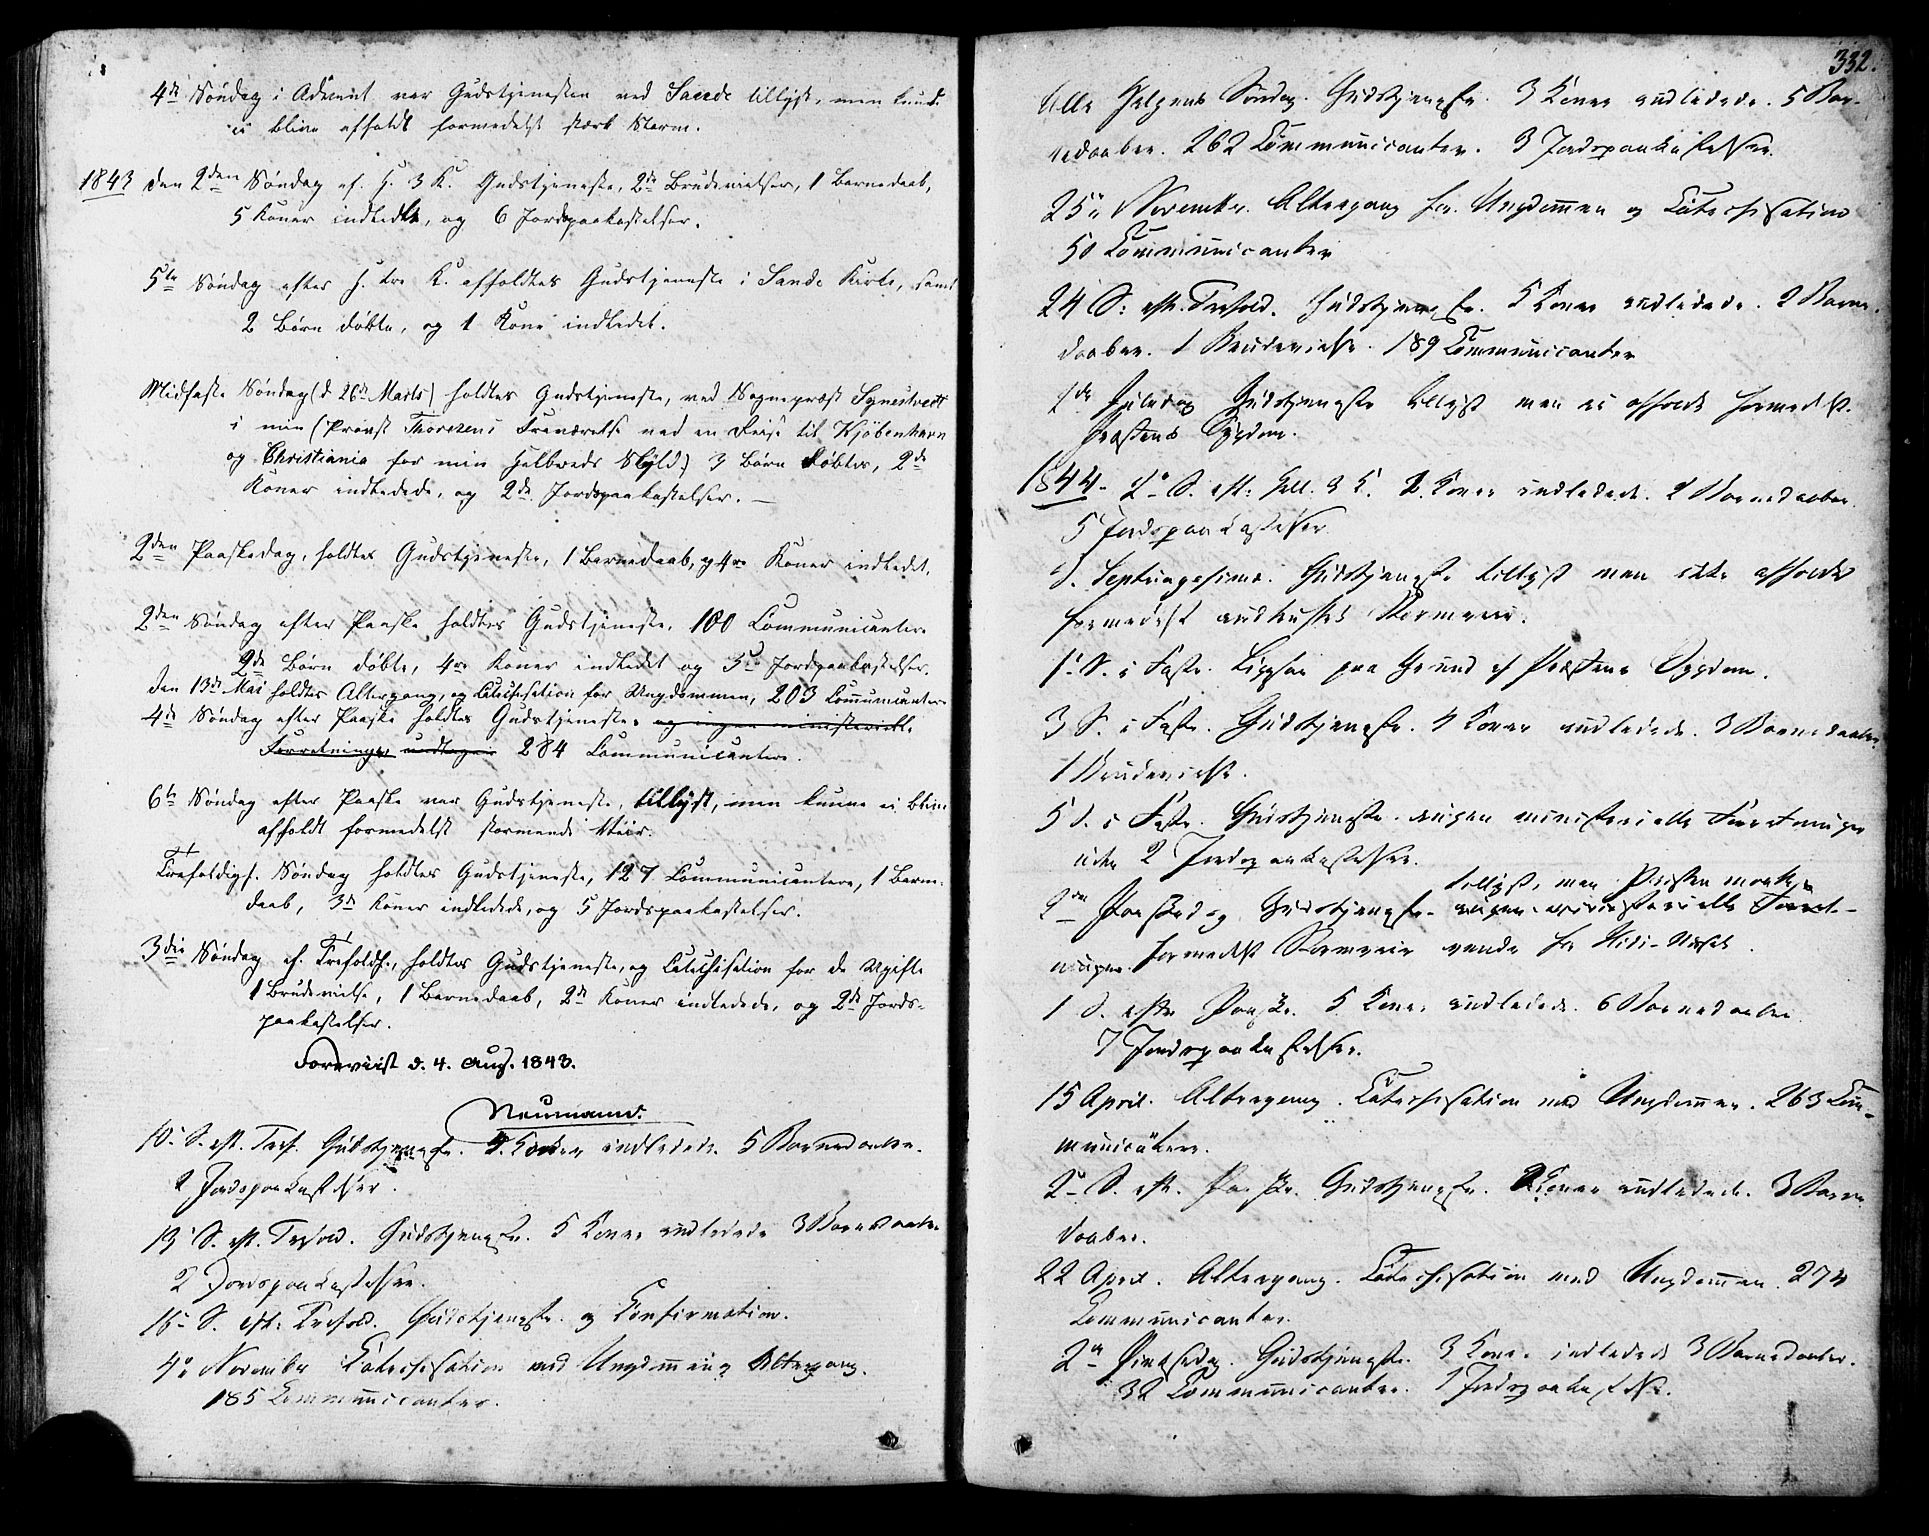 4de Søndag i Advent var Gudstjenesten ved Sande tillyst, men kunde
ei blive afholdt formedelst stærk Storm.
1843 den 2den Søndag ef. H. 3 K. Gudstjeneste, 2de Brudevielser, 1 Barnedaab,
5 Koner indledte, og 6 Jordspaakastelser.
5te Søndag efter H. tre K. afholdtes Gudstjeneste i Sande Kirke, samt
2 Børn døbte, og 1 Kone indledet.
Midfaste Søndag (d 26de Marts) holdtes Gudstjeneste, ved Sognepræst Synestvedt
i min (Provst Thoresens Fraværelse ved en Reise til Kjøbenhavn
og Christiania for min Helbreds Skyld) 3 Børn døbtes, 2de
Koner indledede, og 2de Jordspaakastelser. —
2den Paaskedag, holdtes Gudstjeneste, 1 Barnedaab, og 4re Koner indledet.
2den Søndag efter Paaske holdtes Gudstjeneste, 100 Communicantere
2de Børn døbte, 4re Koner indledet og 3de Jordspaakastelser.
den 13de Mai holdtes Altergang, og Catechisation for Ungdommen, 203 Communicantere
4de Søndag efter Paaske holdtes Gudstjeneste, og ingen ministerielle
Forretninger undtagen 284 Communicantere.
6te Søndag efter Paaske var Gudstjeneste, tillyst, men kunne ei blive
afholdt formedelst stormende Veir.
Trefoldigh. Søndag holdtes Gudstjeneste, 127 Communicantere, 1 Barne-
daab, 3de Koner indledede, og 5 Jordspaakastelser.
3die Søndag ef. Trefoldh., holdtes Gudstjeneste, og Catechisation for de Ugifte
1 Brudevielse, 1 Barnedaab, 2de Koner indledede, og 2de Jords-
paakastelser.
Foreviist d. 4. Aug. 1843.
Neumann.
10. S. eft. Tref. Gudstjeneste. Koner indledede. 5 Barnedaaber.
2 Jordspaakastelser.
13 S. eft. Trefold. Gudstjeneste. 5 Koner indledede 3 Barnedaaber
2 Jordspaakastelser.
S. eft. Trefold. Gudstjeneste og Confirmation.
4de November Catechisation med Ungdommen og Altergang.
185 Communicanter.
332.
Alle Helgens Søndag. Gudstjeneste. 3 Koner indledede. 5 Bar-
nedaaber. 262 Communicanter. 3 Jordspaakastelser.
25de November. Altergang for Ungdommen og Catechisation
50 Communicanter
24 S. eft. Trefold. Gudstjeneste. 5 Koner indledede. 2 Barne-
daaber. 1 Brudevielse. 189 Communicanter
1ste Juledag Gudstjeneste tillyst men ei afholdt formedelst
Præstens Sygdom.
1844. S. eft. Hell. 3 K. 2 Koner indledede. 2 Barnedaaber.
5 Jordspaakastelser
S. Septuagesima. Gudstjeneste tillyst men ikke afholdt
formedelst Stormveir.
1. S. i Faste. paa Grund af Præstens Sygdom.
3 S. i Faste. Gudstjeneste. 4 Koner indledede. 3 Barnedaaber
1 Brudevielse.
5 S. i Faste. Gudstjeneste. ingen ministerielle Forretninger
uden 2 Jordspaakastelser.
tillyst, men Præsten maatte
2den Paaskedag Gudstjeneste. ingen ministerielle Forret-
ninger. formedelst Stormveir vende
1 S. efter Paaske. 5 Koner indledede. 6 Barnedaaber.
7 Jordspaakastelser.
15 April. Altergang. Catechisation med Ungdommen. 263 Com-
municantere.
2. S. eft. Paaske. Gudstjeneste. 2 Koner indledede. 3 Barne-
daaber.
22 April. Altergang. Catechisation med Ungdommen. 274
Communicanter.
2den Pintsedag. Gudstjeneste. 3 Koner indledede 3 Barnedaaber.
32 Communicanter. 1 Jordspaakastelse.